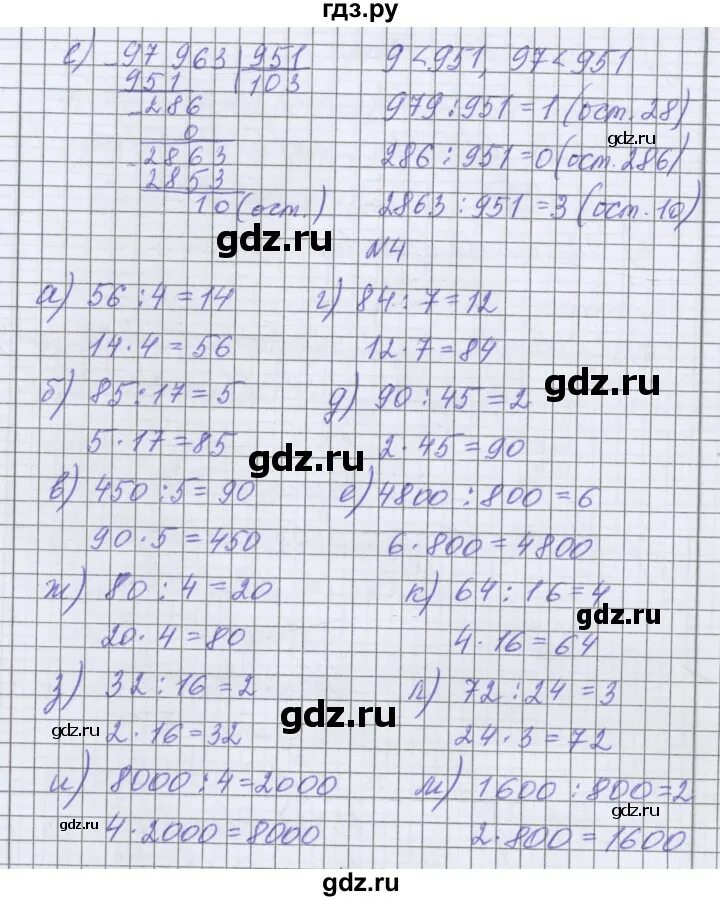 гдз.ру
е) 97 963 | 951
951 | 103
286
0
2863
2853
10 (ост.)
9 < 951, 97 < 951
979 : 951 = 1 (ост. 28)
gdz.ru
286 : 951 = 0 (ост. 286)
2863 : 951 = 3 (ост. 10)
gdz.ru
№4
а) 56 : 4 = 14
14 · 4 = 56
б) 85 : 17 = 5
5 · 17 = 85
gdz.ru
в) 450 : 5 = 90
90 · 5 = 450
г) 84 : 7 = 12
12 · 7 = 84
gdz.ru
д) 90 : 45 = 2
2 · 45 = 90
е) 4800 : 800 = 6
6 · 800 = 4800
ж) 80 : 4 = 20
20 · 4 = 80
з) 32 : 16 = 2
gdz.ru
2 · 16 = 32
gdz.ru
и) 8000 : 4 = 2000
gdz.ru
4 · 2000 = 8000
к) 64 : 16 = 4
gdz.ru
4 · 16 = 64
л) 72 : 24 = 3
24 · 3 = 72
м) 1600 : 800 = 2
gdz.ru
2 · 800 = 1600
gdz.ru